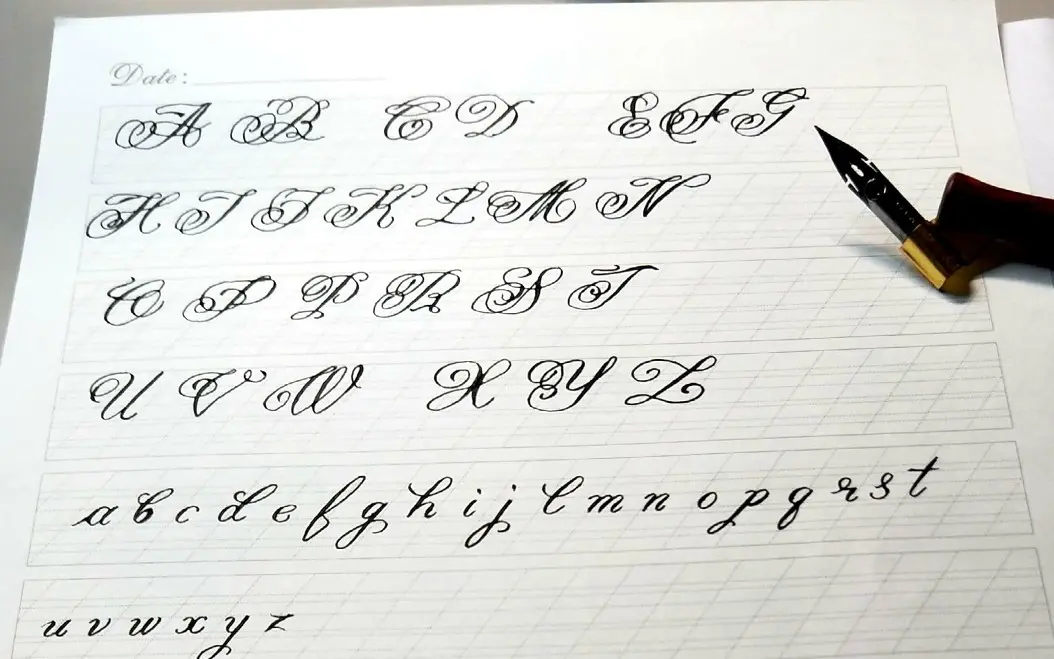 Date:
A B C D E F G
H I J K L M N
O P P R S T
U V W X Y Z
a b c d e f g h i j l m n o p q r s t
u v w x y z